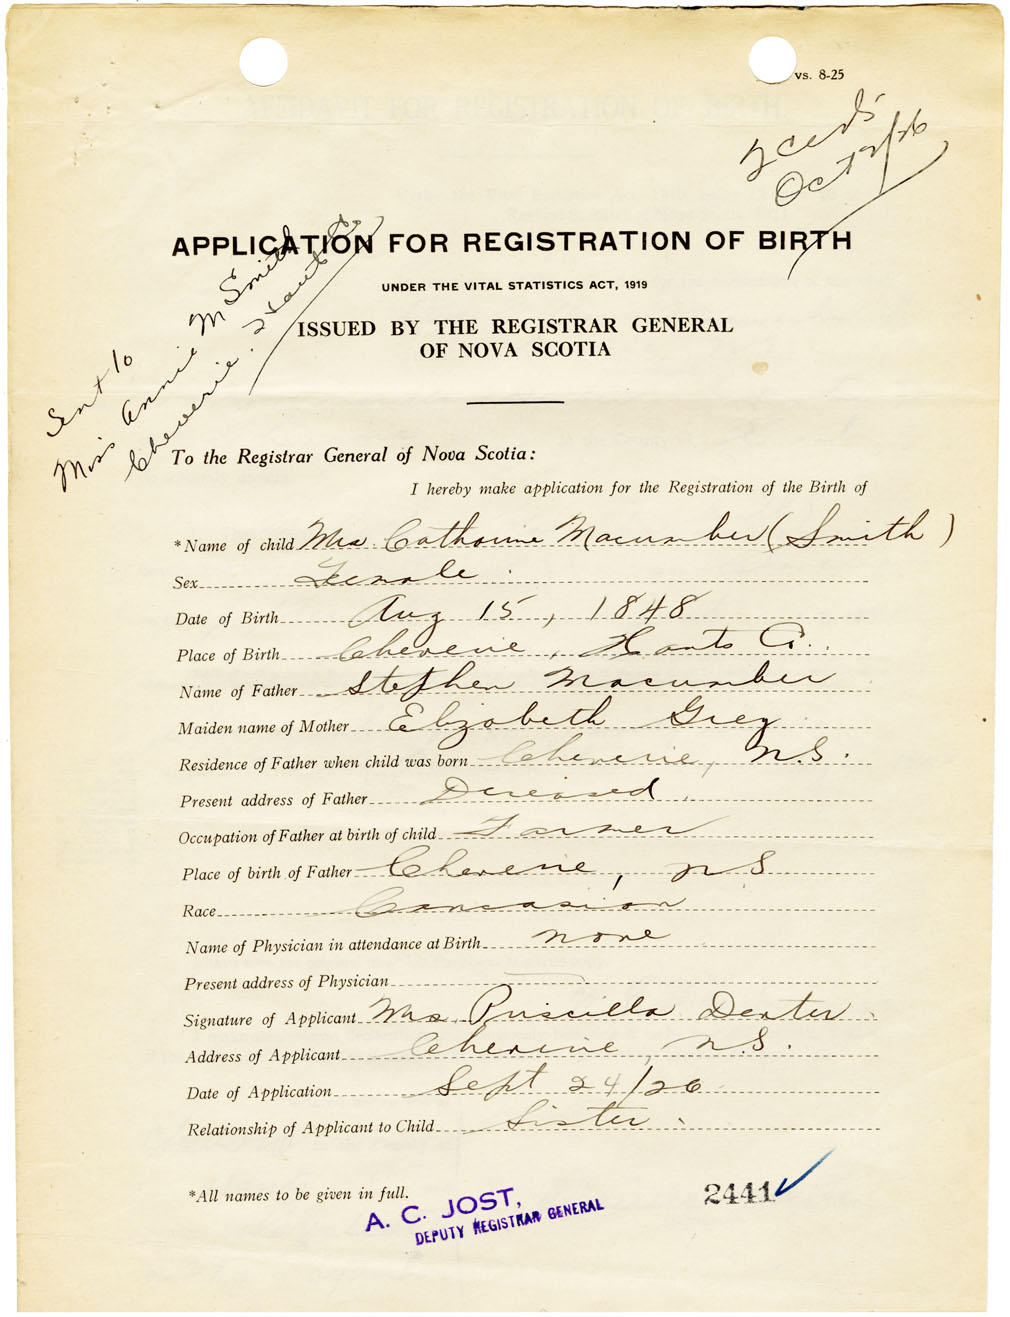 vs. 8-25
2 certs
Oct 2/26
Sent to
Miss Annie M Smith
Cheverie. Hants Co.
APPLICATION FOR REGISTRATION OF BIRTH
UNDER THE VITAL STATISTICS ACT, 1919
ISSUED BY THE REGISTRAR GENERAL
OF NOVA SCOTIA
To the Registrar General of Nova Scotia:
I hereby make application for the Registration of the Birth of
*Name of child Mrs. Catherine Macumber (Smith)
Sex Female
Date of Birth Aug 15, 1848
Place of Birth Cheverie, Hants Co.
Name of Father Stephen Macumber
Maiden name of Mother Elizabeth Grey
Residence of Father when child was born Cheverie, N.S.
Present address of Father Deceased
Occupation of Father at birth of child Farmer
Place of birth of Father Cheverie, N S
Race Caucasian
Name of Physician in attendance at Birth none
Present address of Physician
Signature of Applicant Mrs Priscilla Dexter
Address of Applicant Cheverie, N.S.
Date of Application Sept 24/26
Relationship of Applicant to Child Sister
*All names to be given in full.
2441
A. C. JOST,
DEPUTY REGISTRAR GENERAL